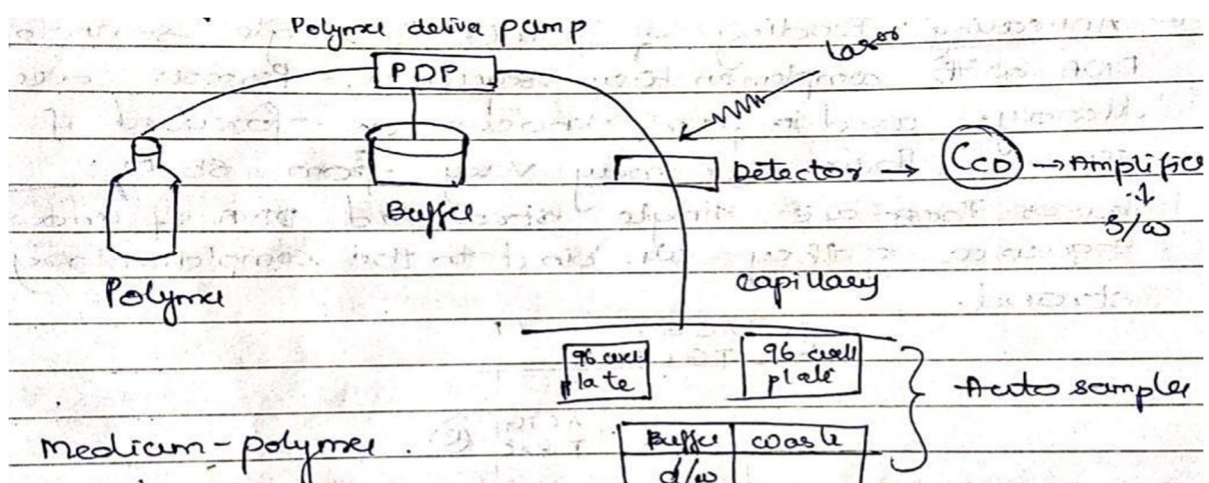 Polymer deliva pump
laser
PDP
Detector → CCD → Amplifier
↓
S/w
Buffer
Polymer
capillary
96 well plate
96 well plate
Auto sampler
medium - polymer.
Buffer
waste
d/w